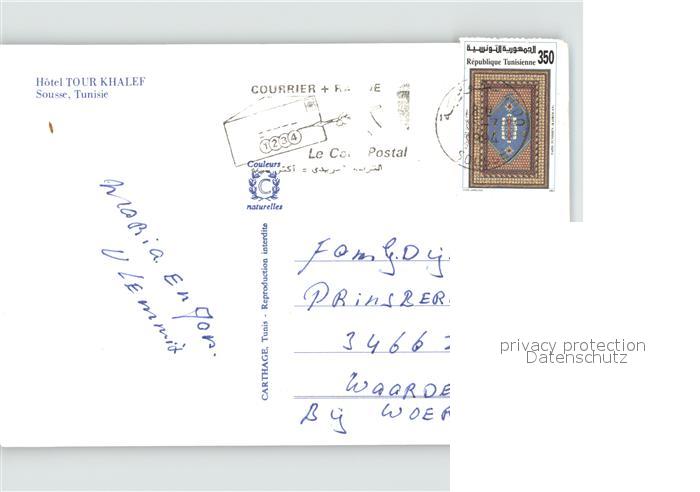 Hôtel TOUR KHALEF
Sousse, Tunisie
COURRIER + RA
1234
Le Co Postal
الجمهورية التونسية
République Tunisienne 350
Couleurs
C
naturelles
CARTHAGE, Tunis - Reproduction interdite
Maria En Jos.
Vlemmix
Family. Dij
PRINSBER
3466
WAARDE
Bij WOER
privacy protection
Datenschutz